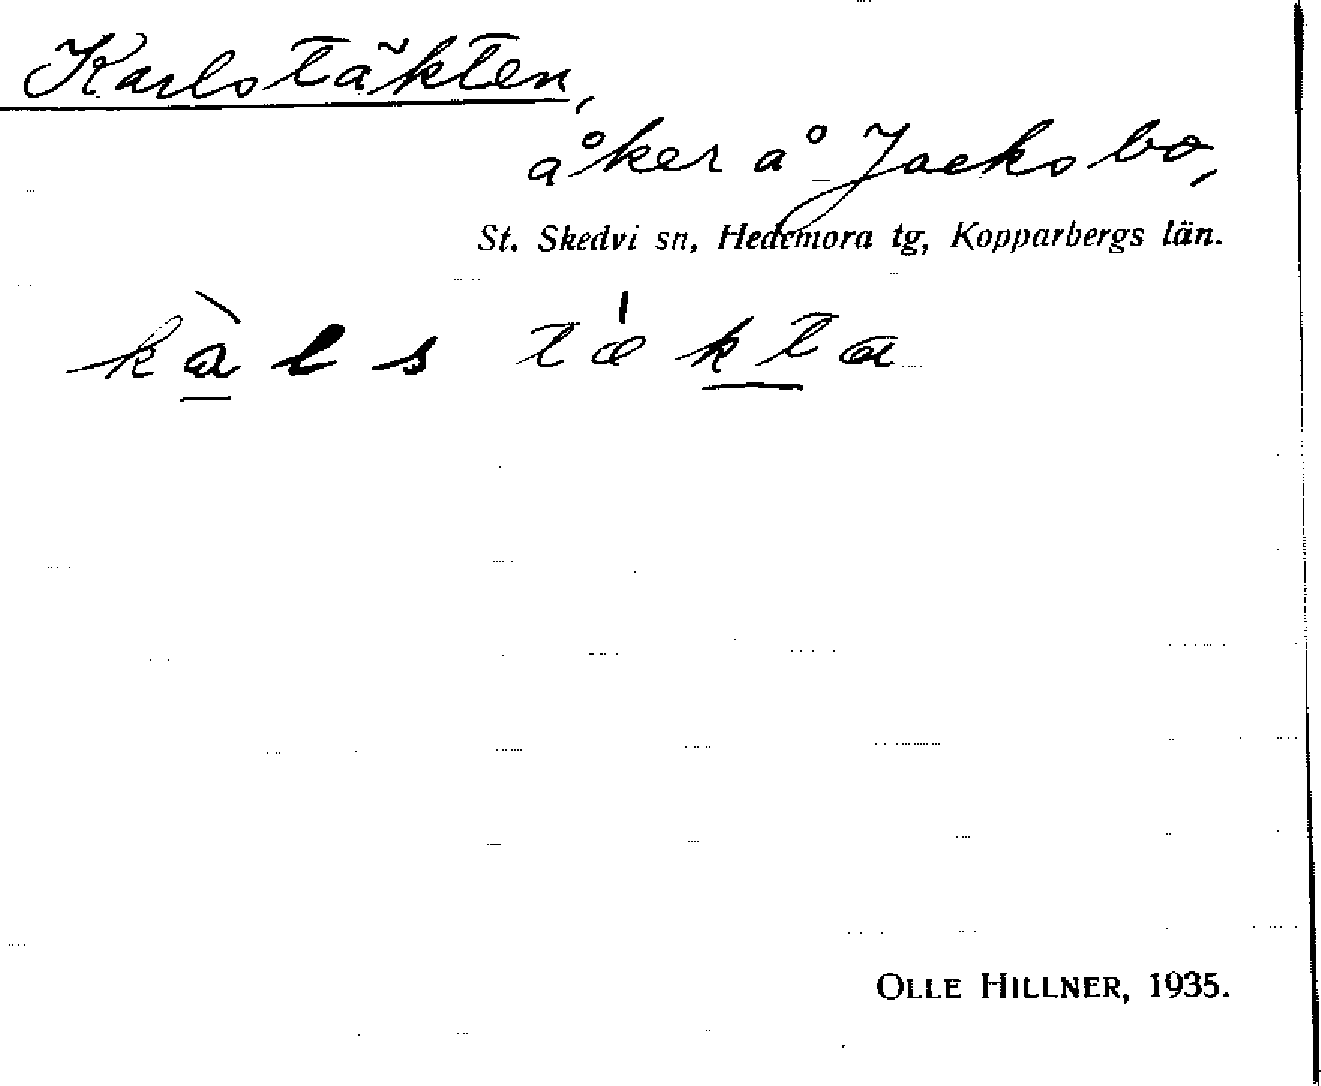 Karlstäkten,
åker å Jacksbo,
St. Skedvi sn, Hedemora tg, Kopparbergs län.
kàls tǽkta
OLLE HILLNER, 1935.